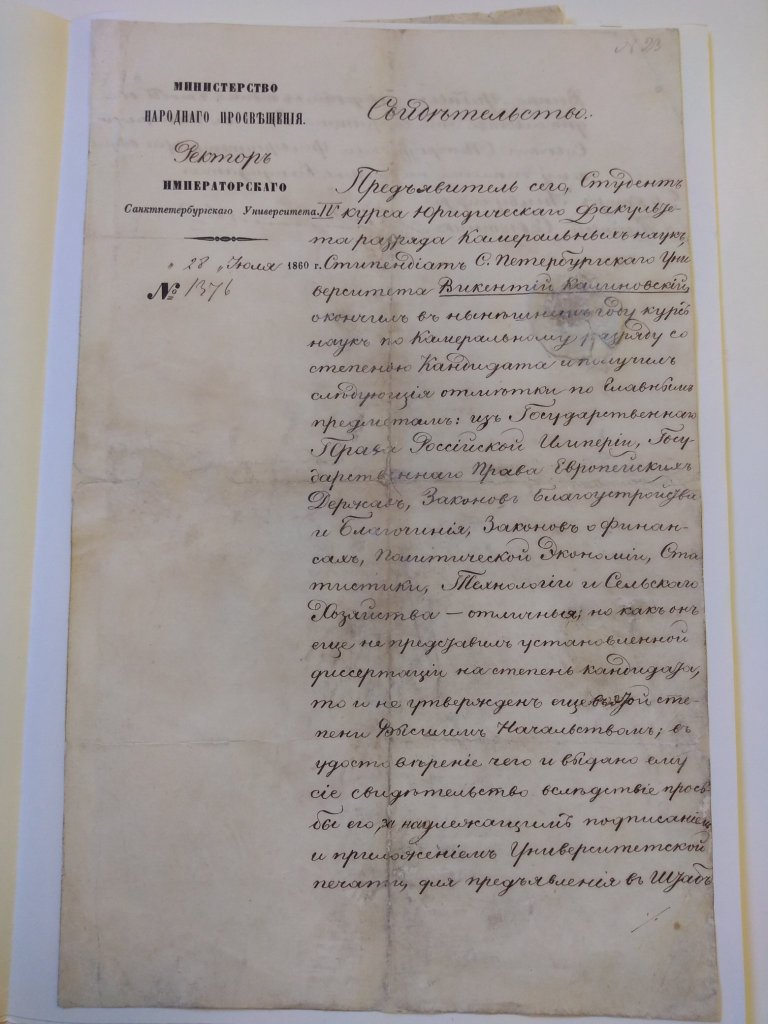 № 23
МИНИСТЕРСТВО
НАРОДНАГО ПРОСВѢЩЕНІЯ.
Ректоръ
ИМПЕРАТОРСКАГО
Санктпетербургскаго Университета.
„ 28 „ Іюля 1860 г.
№ 1376
Свидѣтельство.
Предъявитель сего, Студентъ
IV курса Юридическаго Факульте-
та разряда Камеральныхъ наукъ,
Стипендіатъ С. Петербургскаго Уни
верситета Викентій Калиновскій,
окончилъ въ нынѣшнемъ году курсъ
наукъ по Камеральному разряду со
степенью Кандидата и получилъ
слѣдующія отмѣтки по Главнымъ
предметамъ: изъ Государственнаго
Права Россійской Имперіи, Госу-
дарственнаго Права Европейскихъ
Державъ, Законовъ Благоустройства
и Благочинія, Законовъ о Финан-
сахъ, Политической Экономіи, Ста
тистики, Технологіи и Сельскаго
Хозяйства — отличныя; но какъ онъ
еще не представилъ установленной
диссертаціи на степень кандидата,
то и не утвержденъ еще въ этой сте-
пени Высшимъ Начальствомъ; въ
удостовѣреніе чего и выдано ему
сіе свидѣтельство вслѣдствіе прось
бы его, за надлежащимъ подписаніемъ
и приложеніемъ Университетской
печати, для предъявленія въ Штабъ